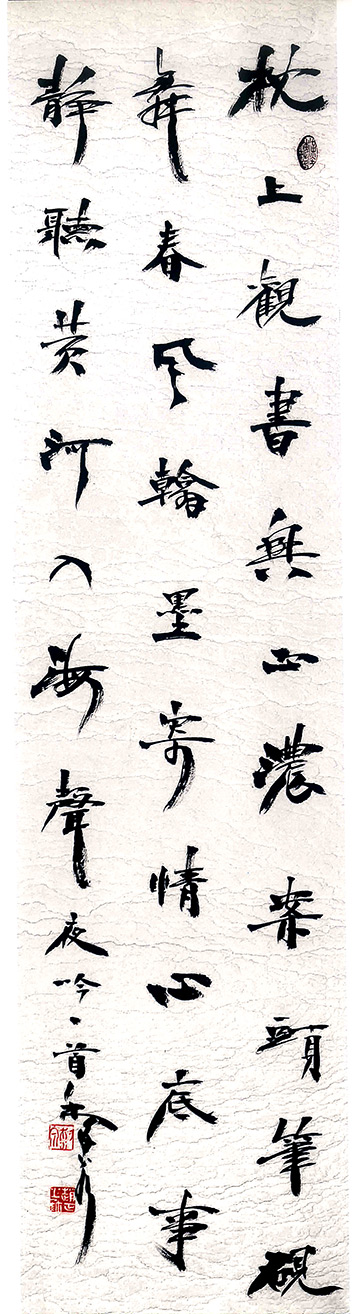 枕上觀書興正濃案頭筆硯
舞春風翰墨寄情心底事
靜聽黄河入海聲夜吟一首